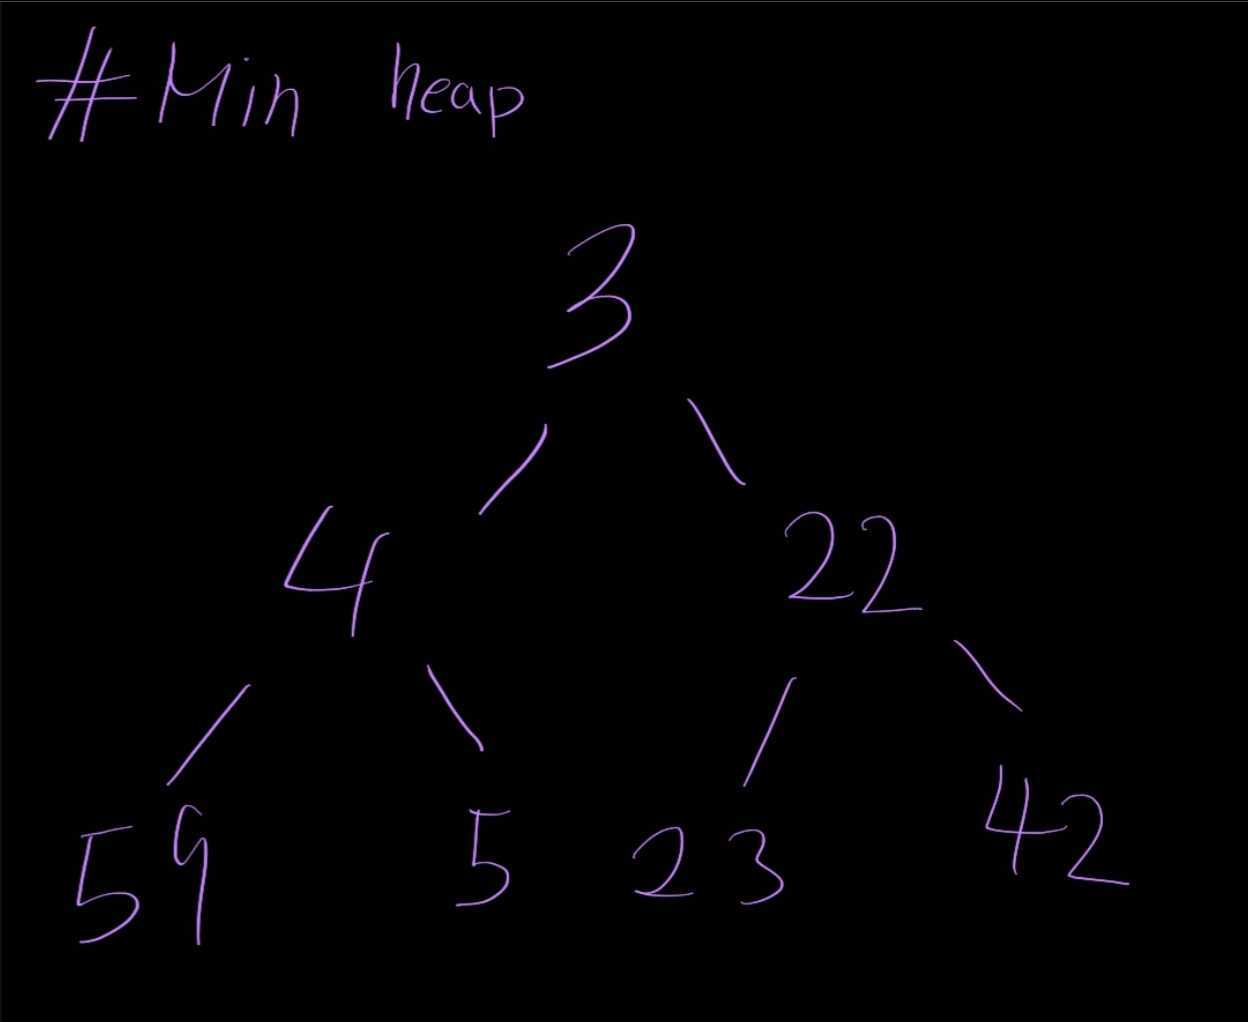 # Min heap
3
4 22
59 5 23 42